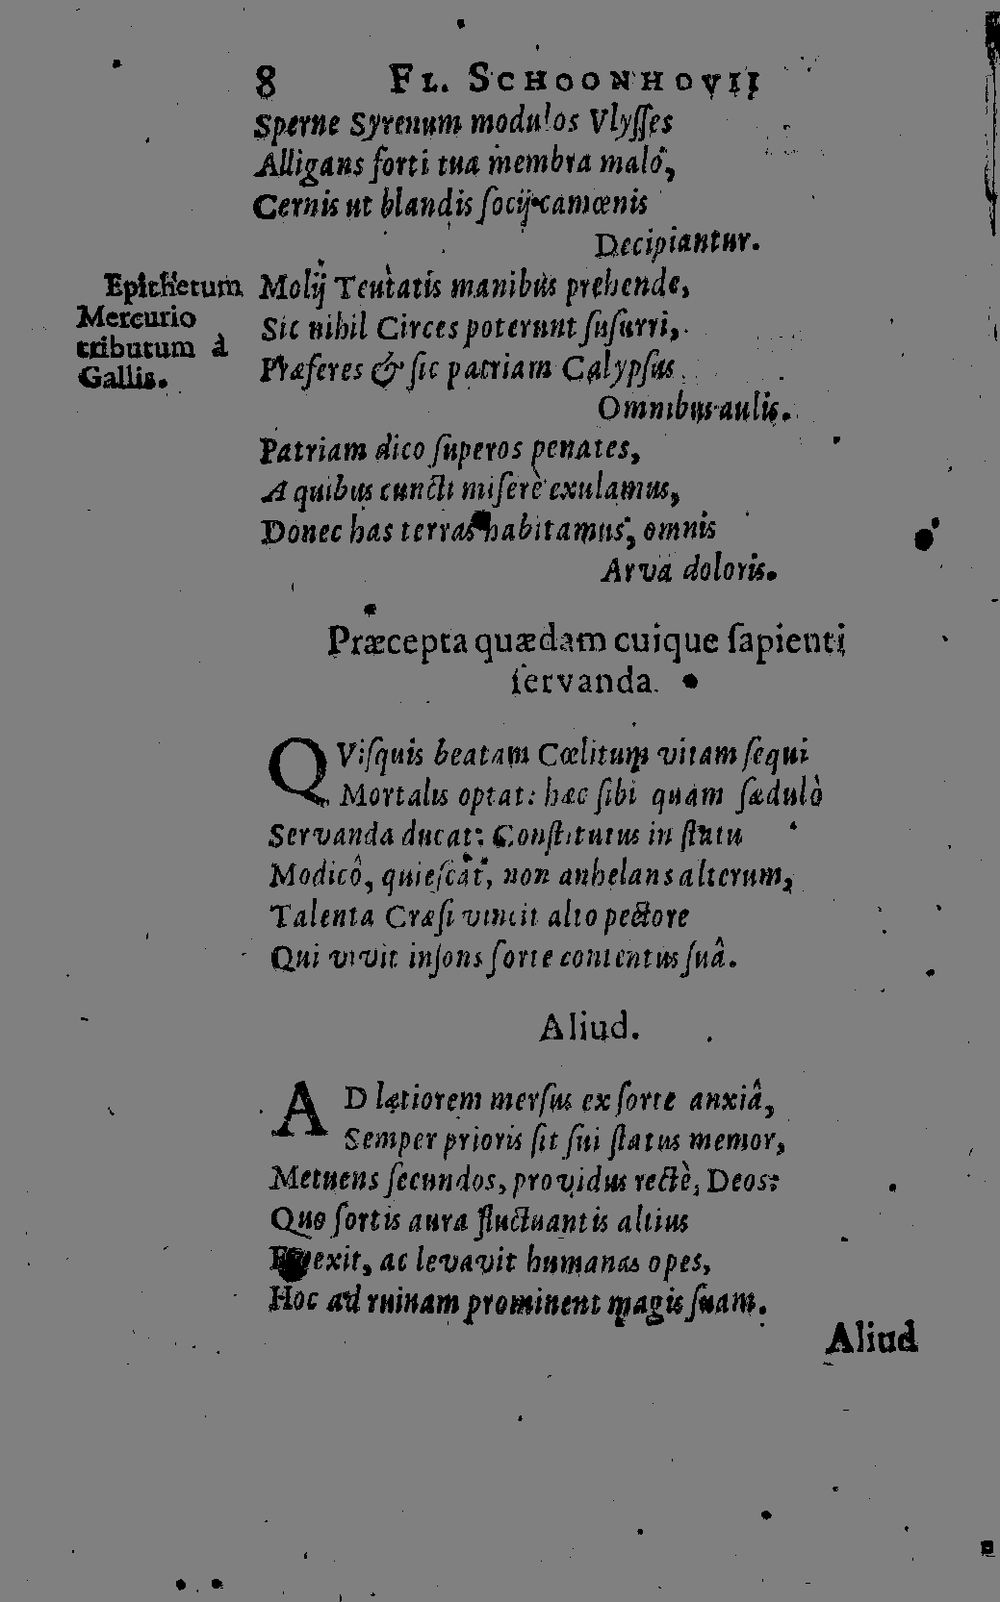 8 FL. SCHOONHOVII
Sperne Syrenum modulos Vlyſſes
Alligans forti tua membra malo,
Cernis ut blandis ſocij camœnis
Decipiantur.
Epithetum
Mercurio
tributum à
Gallis.
Molij Teutatis manibus prehende,
Sic nihil Circes poterunt ſuſurri,
Præferes & ſic patriam Calypſus
Omnibus aulis.
Patriam dico ſuperos penates,
A quibus cuncti miſerè exulamus,
Donec has terras habitamus, omnis
Arva doloris.
Præcepta quædam cuique ſapienti
ſervanda.
QViſquis beatam Cœlitum vitam ſequi
Mortalis optat: hæc ſibi quam ſædulò
Servanda ducat: Conſtitutus in ſtatu
Modicô, quieſcat, non anhelans alterum,
Talenta Cræſi vincit alto pectore
Qui vivit inſons ſorte contentus ſuâ.
Aliud.
AD lætiorem merſus ex ſorte anxiâ,
Semper prioris ſit ſui ſtatus memor,
Metuens ſecundos, providus rectè, Deos:
Quo ſortis aura fluctuantis altius
Evexit, ac levavit humanas opes,
Hoc ad ruinam prominent magis ſuam.
Aliud